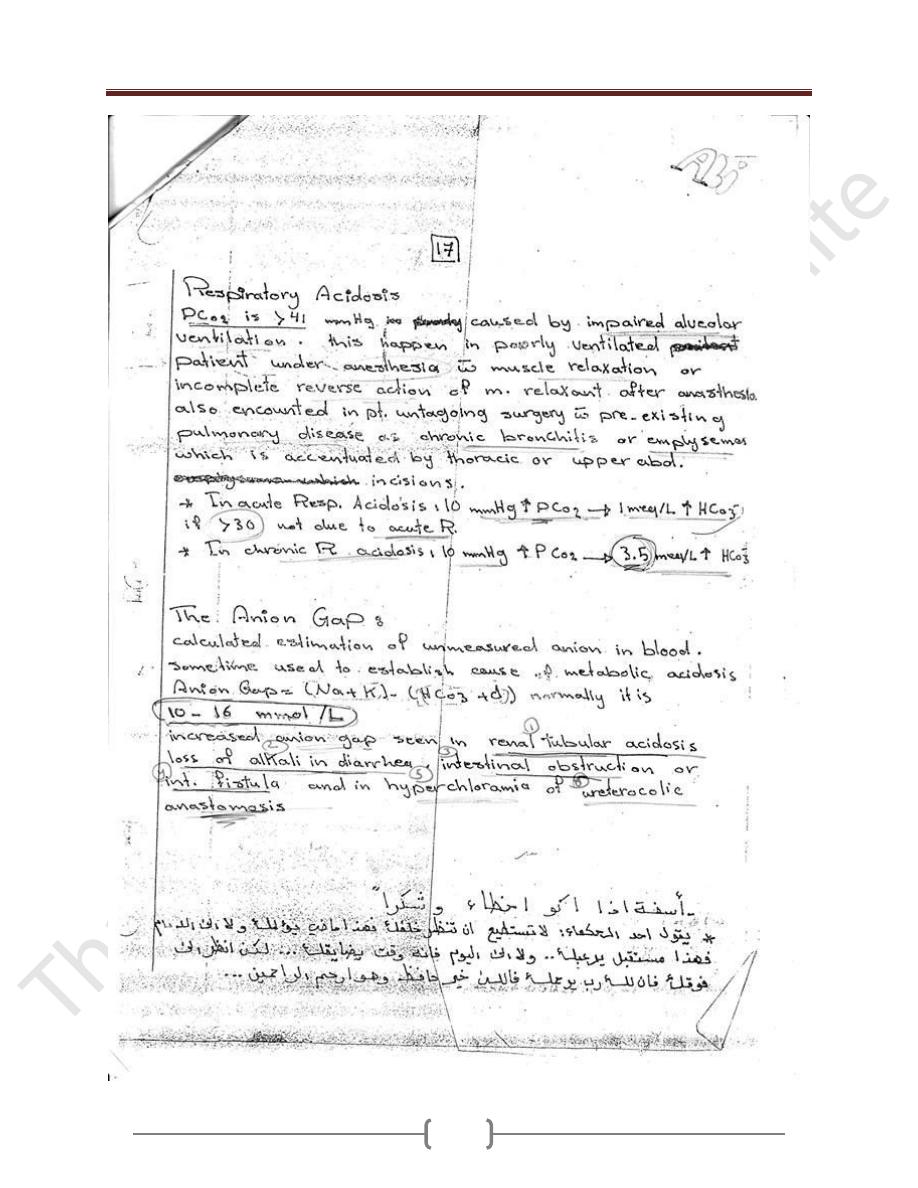 ABi
17
Respiratory Acidosis
PCO2 is > 41 mmHg caused by impaired alveolar
ventilation. this happen in poorly ventilated
patient under anesthesia c̄ muscle relaxation or
incomplete reverse action of m. relaxant after anasthesia.
also encounted in pt. untagoing surgery c̄ pre-existing
pulmonary disease as chronic bronchitis or emplysemas
which is accentuated by thoracic or upper abd.
incisions.
* In acute Resp. Acidosis, 10 mmHg ↑ PCO2 → 1 meq/L ↑ HCO3⁻
if > 30 not due to acute R.
* In chronic R. acidosis, 10 mmHg ↑ PCO2 → 3.5 meq/L ↑ HCO3⁻
The Anion Gap :
calculated estimation of unmeasured anion in blood.
sometime used to establish cause of metabolic acidosis
Anion Gap = (Na + K) - (HCO3⁻ + cl) normally it is
10 - 16 mmol/L
increased anion gap seen in renal ① tubular acidosis
loss of alkali in diarrhea ②, ③ intestinal obstruction or
④ int. fistula and in ⑤ hyperchloramia of ⑥ ureterocolic
anastomosis
- أسفة اذا اكو اخطاء وشكراً"
* يقول احد الحكماء: لا تستطيع ان تنظر خلفك فهذا ماضي يؤلمك ولا الى الامام
فهذا مستقبل يرعبك .. ولا الى اليوم فانه وقت يضايقك ... لكن انظر الى
فوقك فان لك رب يرحمك فالله خير حافظ وهو ارحم الراحمين ...